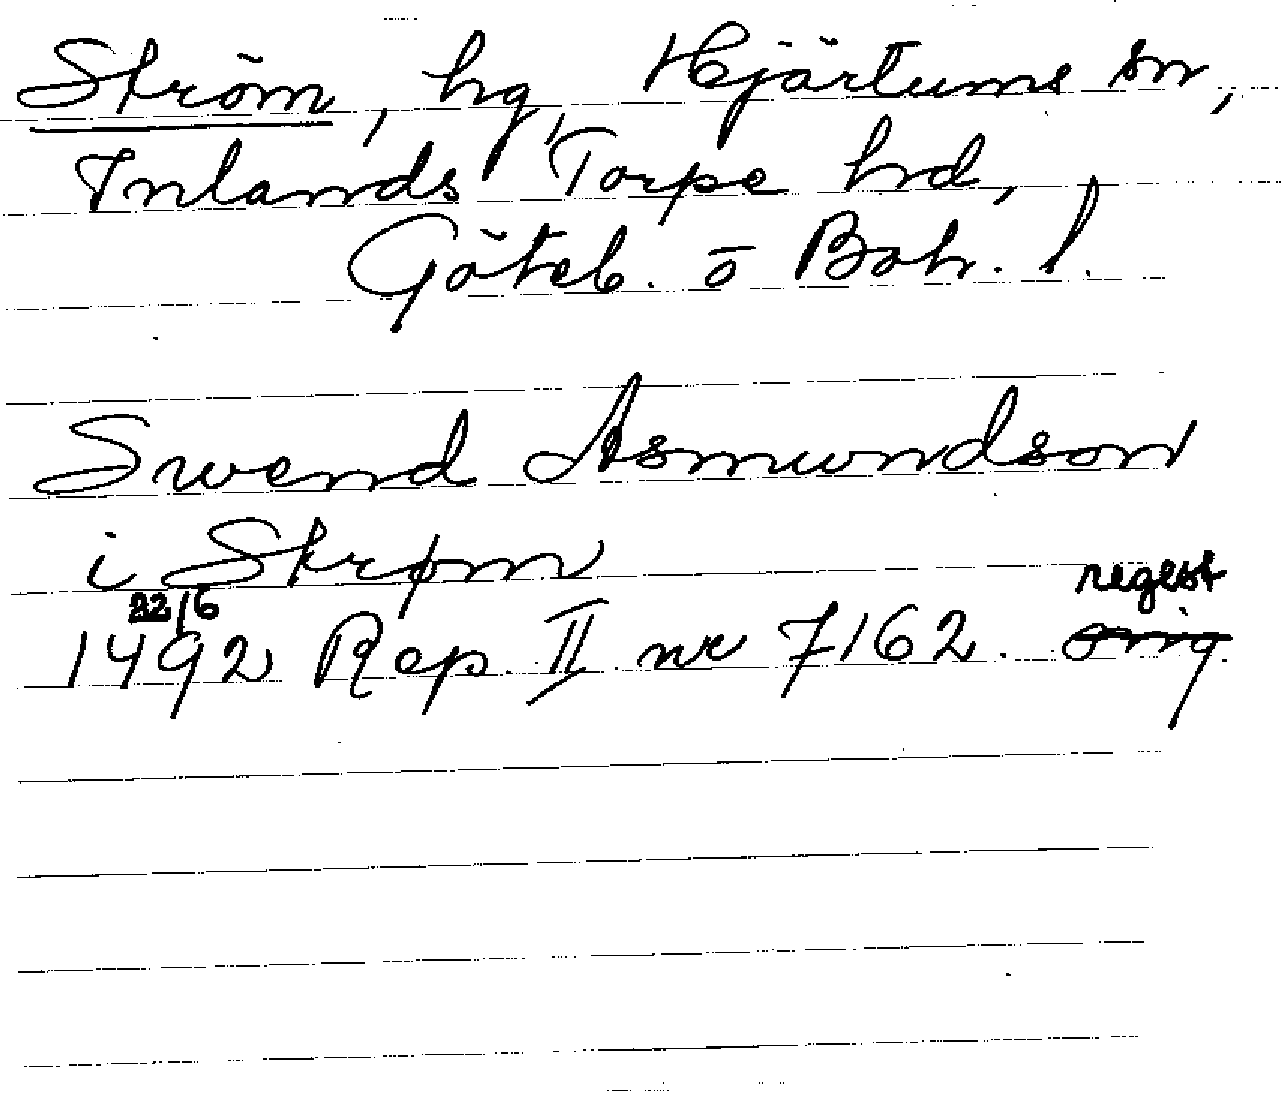 Ström, hg, Hjärtums sn,
Inlands Torpe hd,
Göteb. o Boh. l.
Swend Asmundson
i Strøm
22/6 regest
1492 Rep. II nr 7162. orig.